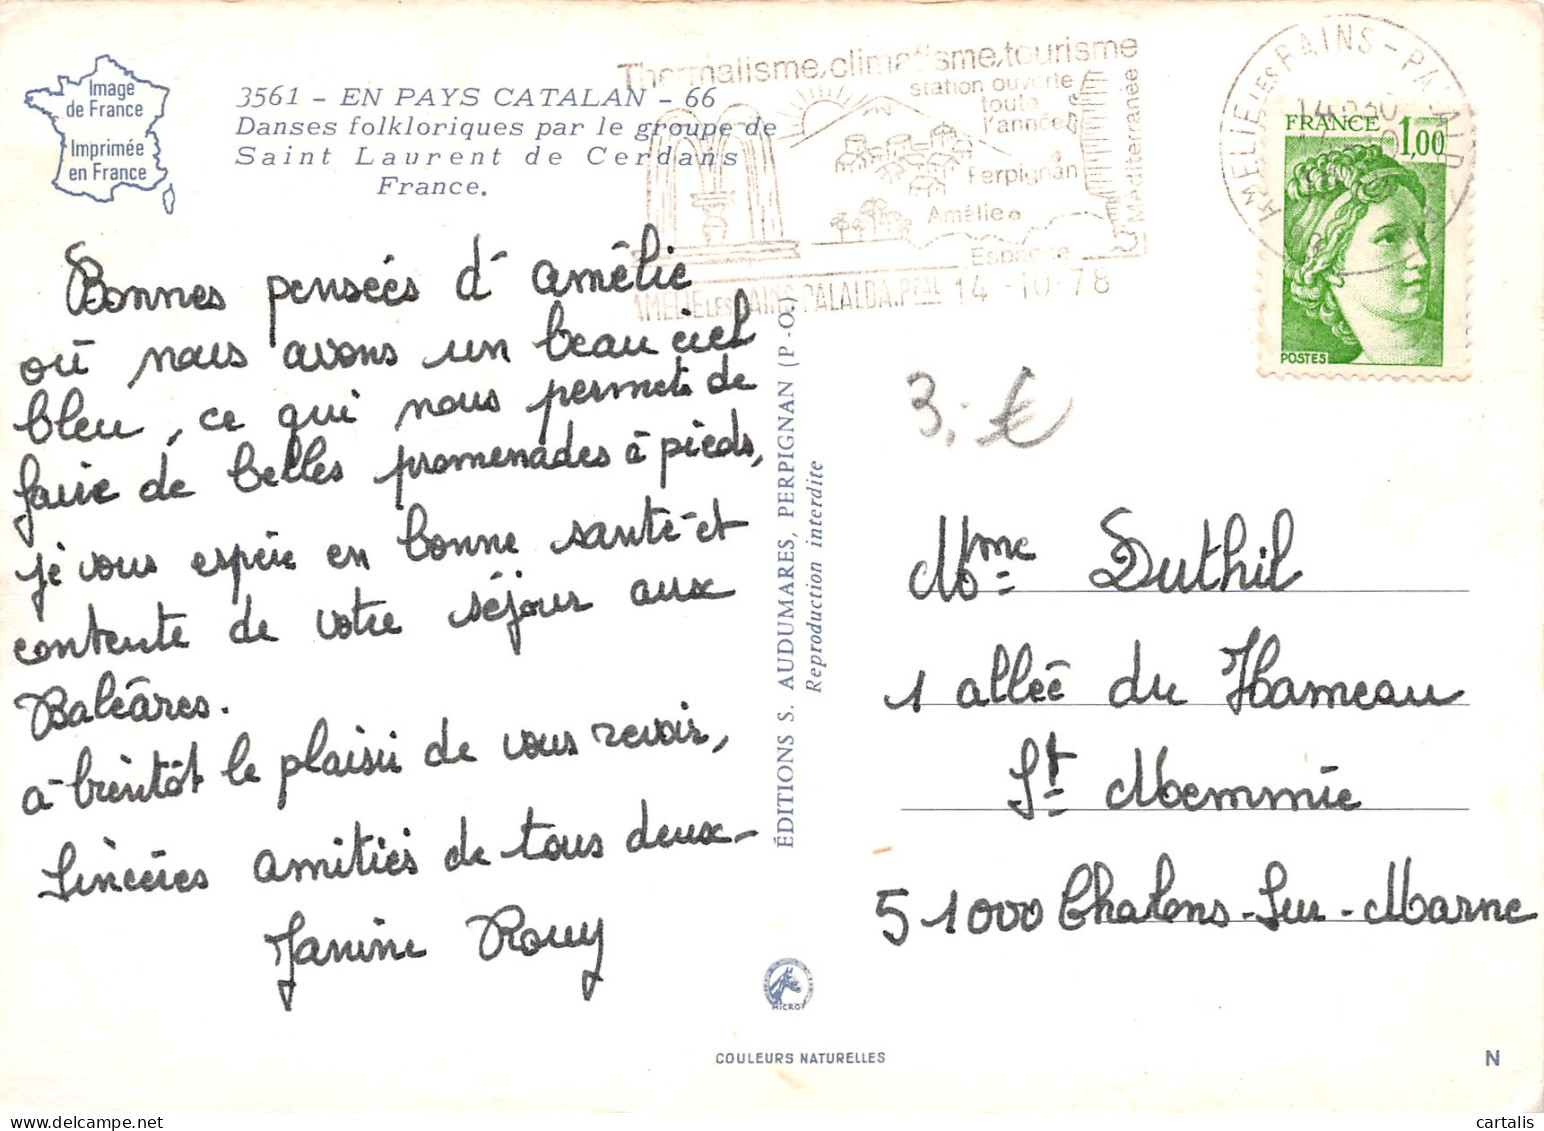 Image
de France
Imprimée
en France
3561 - EN PAYS CATALAN - 66
Danses folkloriques par le groupe de
Saint Laurent de Cerdans
France.
Thermalisme, climatisme, tourisme
station ouverte
toute
l'année
Perpignan
Amélie
Espagne
Méditerranée
AMELIE LES BAINS PALALDA.PPAL 14 -10-78
AMELIE LES BAINS - PALALDA
FRANCE 1,00
POSTES
Bonnes pensées d'amélie
où nous avons un beau ciel
bleu, ce qui nous permet de
faire de belles promenades à pieds,
je vous espére en bonne santé et
contente de votre séjour aux
Baléares.
à bientôt le plaisir de vous revoir,
Sincères amitiés de tous deux-
Janine Rouy
ÉDITIONS S. AUDUMARES, PERPIGNAN (P.-O.)
Reproduction interdite
3.- €
Mme Duthil
1 allée du Hameau
St Memmie
51000 Chalons-Sur-Marne
MICRO
COULEURS NATURELLES
N
cartalis